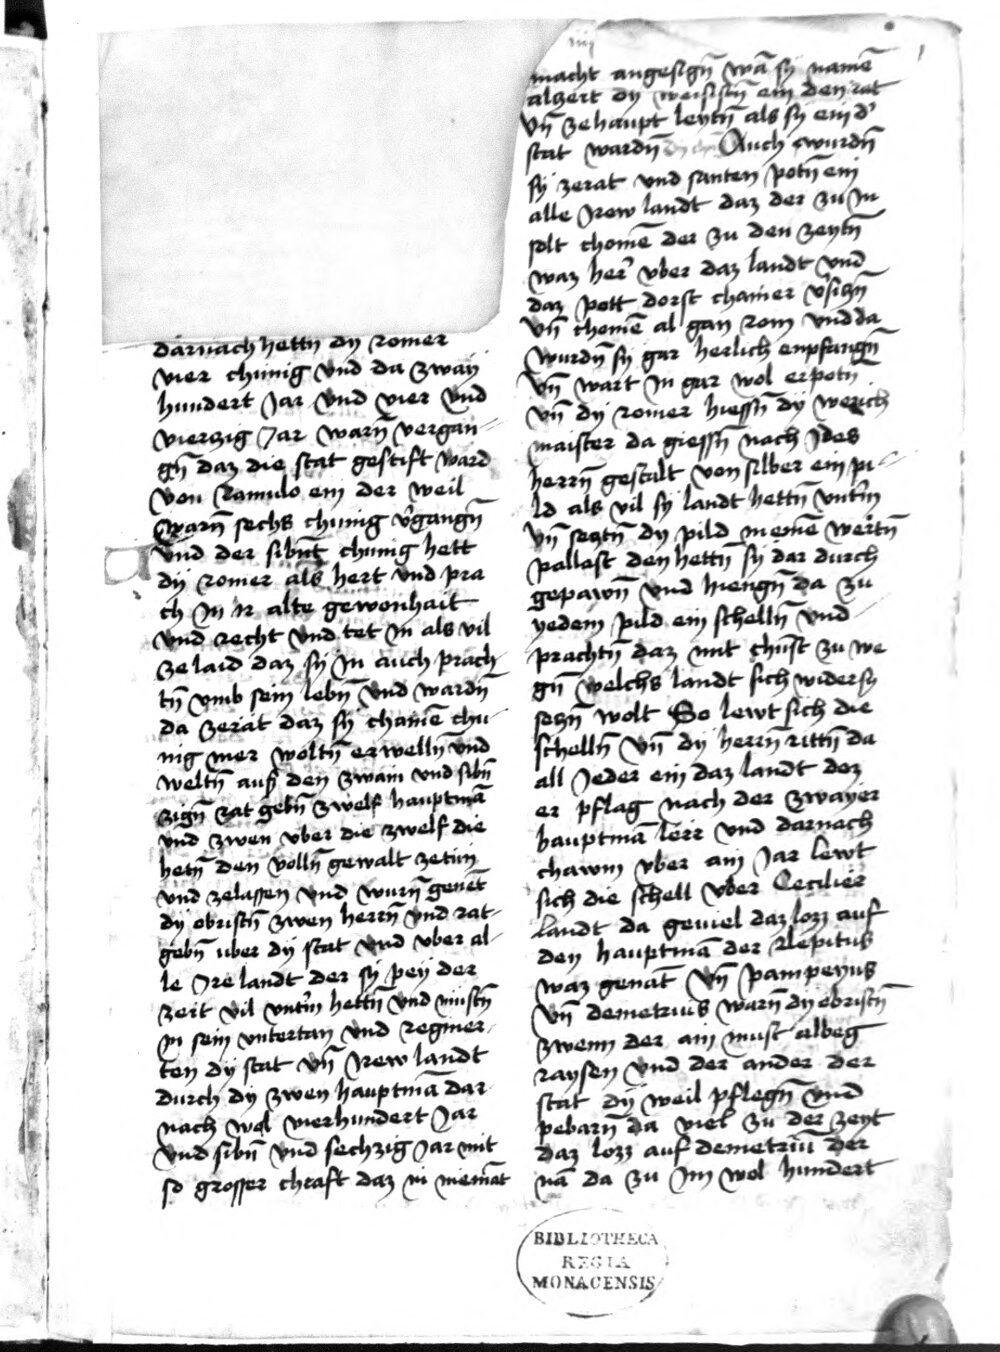 darnach hettn̄ dy romer
vier chunig vnd da zway
hundert Jar vnd vier vnd
vierczig Jar warn̄ vergan-
gn̄ daz die stat gestift ward
von Ramulo ein der weil
warn̄ sechs chunig v̾gangn̄
vnd der sibnt̄ chunig hett
dy romer als hert vnd pra
ch in ir alte gewonhait
vnd recht vnd tet in als vil
ze laid daz sy in auch prach-
tn̄ vmb sein lebn̄ vnd wardn̄
da zerat daz sy chainē chu-
nig mer woltn̄ erwelln̄ vnd
weltn̄ auß den zwain vnd sibn̄
zign̄ rat gebn̄ zwelf hauptmā
vnd zwen vber die zwelf die
hetn̄ den volln̄ gewalt zetun
vnd zelassen vnd wurn̄ genēt
dy obristn̄ zwen herrn̄ vnd rat-
gebn̄ uber dy stat vnd vber al-
le Ire landt der sy pey der
zeit vil vntn̄ hettn̄ vnd mustn̄
in sein vntertan vnd regnier-
ten dy stat vn̄ Irew landt
durch dy zwen hauptmā dar-
nach wol vierhundert Jar
vnd sibn̄ vnd sechzig Jar mit
so grosser chraft daz in niemāt
macht angesign̄ wā sy namē
alzert dy weisistn̄ ein den rat
vn̄ ze haupt leytn̄ als sy ein d̾
stat wardn̄ Auch wurdn̄
sy zerat vnd santen potn̄ ein
alle Irew landt daz der zu in
solt chomē der zu den zeytn̄
waz her̾ vber daz landt vnd
daz pott dorst chainer v̾sizn̄
vn̄ chomē al gan rom vnd da
wurdn̄ sy gar herlich enpfangn̄
vn̄ wart in gar wol erpotn̄
vn̄ dy romer hiessn̄ dy werich
maister da giessn̄ nach Ides
herrn̄ gestalt von silber ein pi-
ld als vil sy landt hettn̄ vntn̄
vn̄ seztn̄ dy pild in einē wertn̄
pallast den hettn̄ sy dar durch
gepawn̄ vnd hiengn̄ da zu
yedem pild ein schelln̄ vnd
prachtn̄ daz mit chūst zu we
gn̄ welchs landt sich widersy
sezn̄ wolt So lewt sich die
schelln̄ vn̄ dy herrn̄ rittn̄ da
all Jeder ein daz landt dez
er pflag nach der zwayer
hauptmā lerr vnd darnach
chawm vber ain Jar lewt
sich die schell vber Cecilier
landt da geviel daz lozz auf
den hauptmā der Lepitus
waz genāt vn̄ pampeyus
vn̄ demetrius warn̄ dy obristn̄
zwenn der ain must albeg
raysen vnd der ander der
stat dy weil pflegn̄ vnd
pebarn̄ da viel zu der zeyt
daz lozz auf demetriū der
nā da zu im wol hundert
BIBLIOTHECA
REGIA
MONACENSIS